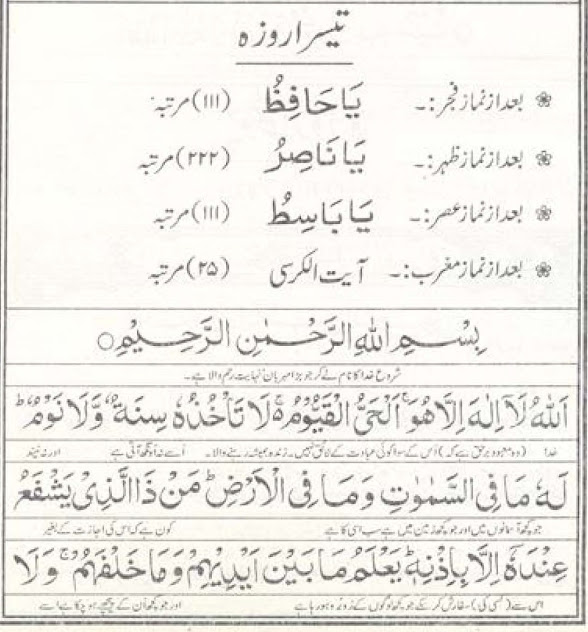 تیسرا روزہ
❀ بعد از نماز فجر:۔ يَا حَافِظُ (۱۱۱) مرتبہ
❀ بعد از نماز ظہر:۔ يَا نَاصِرُ (۲۲۲) مرتبہ
❀ بعد از نماز عصر:۔ يَا بَاسِطُ (۱۱۱) مرتبہ
❀ بعد از نماز مغرب:۔ آیت الکرسی (۲۵) مرتبہ
بِسْمِ اللهِ الرَّحْمٰنِ الرَّحِيْمِ○
شروع خدا کا نام لے کر جو بڑا مہربان نہایت رحم والا ہے۔
اَللهُ لَآ اِلٰهَ اِلَّا هُوَ ۚ اَلْحَىُّ الْقَيُّوْمُ ۚ لَا تَاْخُذُهٗ سِنَةٌ وَّلَا نَوْمٌ ؕ
خدا (وہ معبود برحق ہے کہ) اُس کے سوا کوئی عبادت کے لائق نہیں۔ زندہ ہمیشہ رہنے والا۔ اُسے نہ اونگھ آتی ہے اور نہ نیند
لَهٗ مَا فِى السَّمٰوٰتِ وَمَا فِى الْاَرْضِ ؕ مَنْ ذَا الَّذِىْ يَشْفَعُ
جو کچھ آسمانوں میں اور جو کچھ زمین میں ہے سب اسی کا ہے کون ہے کہ اس کی اجازت کے بغیر
عِنْدَهٗٓ اِلَّا بِاِذْنِهٖ ؕ يَعْلَمُ مَا بَيْنَ اَيْدِيْهِمْ وَمَا خَلْفَهُمْ ۚ وَلَا
اس سے (کسی کی) سفارش کر سکے جو کچھ لوگوں کے روبرو ہو رہا ہے اور جو کچھ اُن کے پیچھے ہو چکا ہے اسے